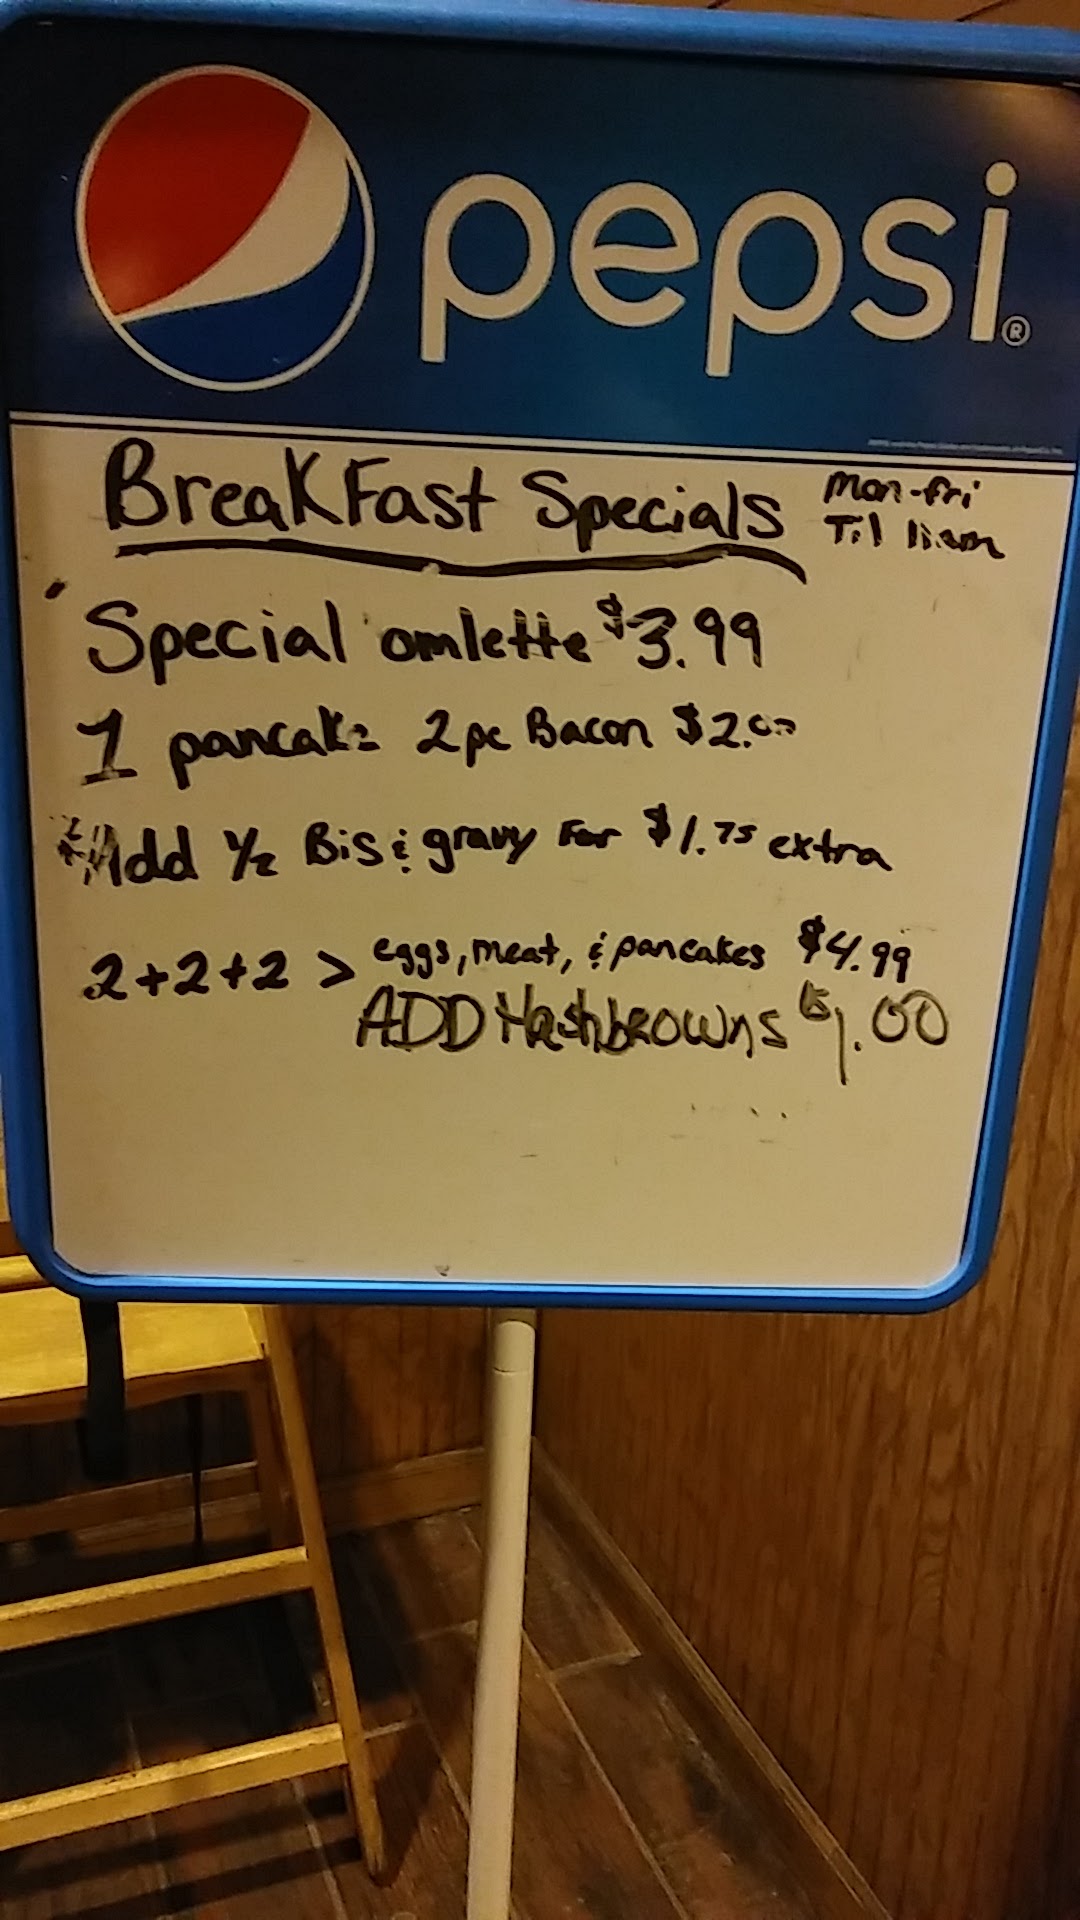 pepsi®
BreakFast Specials
Mon-fri
Til 11am
Special omlette $3.99
1 pancake 2pc Bacon $2.00
*Add 1/2 Bis & gravy For $1.75 extra
2+2+2 > eggs, meat, & pancakes $4.99
ADD Hashbrowns $1.00